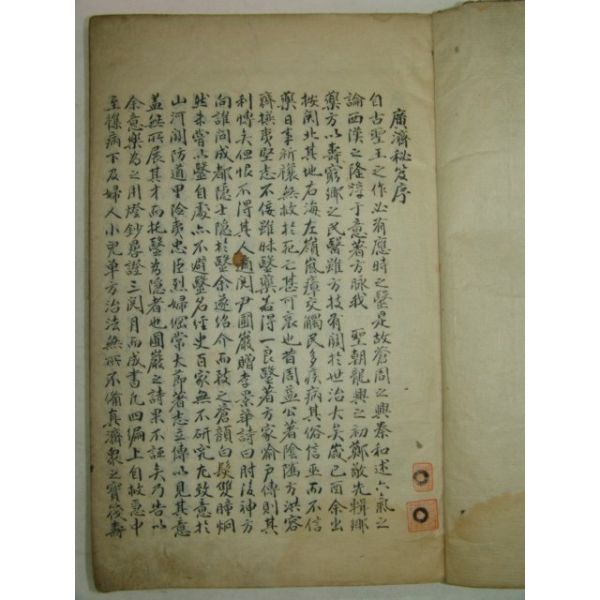 廣濟秘笈序
自古聖王之作必有應時之毉是故蒼周之興秦和述六氣之
論西漢之隆淳于意著方脉我 聖朝龍興之初鄭敬先輯鄉
藥方以壽窮鄉之民毉雖方技有關於世治大矣歲己酉余出
按關北其地右海左嶺嵐瘴交觸民多疾病其俗信巫而不信
藥日事祈禳無救於死亡甚可哀也昔周益公著陰隲方洪容
齋撰夷堅志不侫雖昧毉藥若得一良毉著方家喩戶傳則其
利博矣但恨不得其人適閱尹圃巖贈李景華詩曰肘後神方
向誰問成都隱士隱於毉余遂紹介而致之蒼顔白髮雙瞳炯
然未嘗以毉自處亦不避毉名經史百家無不研究尤致意於
山河關防道里險夷忠臣烈婦倔常大節著志立傳以見其意
盖無所展其才而托毉爲隱者也圃巖之詩果不誣矣乃告以
余意樂爲之用燈鈔畧證三閱月而成書凡四編上自救急中
至襍病下及婦人小兒單方治法無所不備眞濟衆之寶筏壽